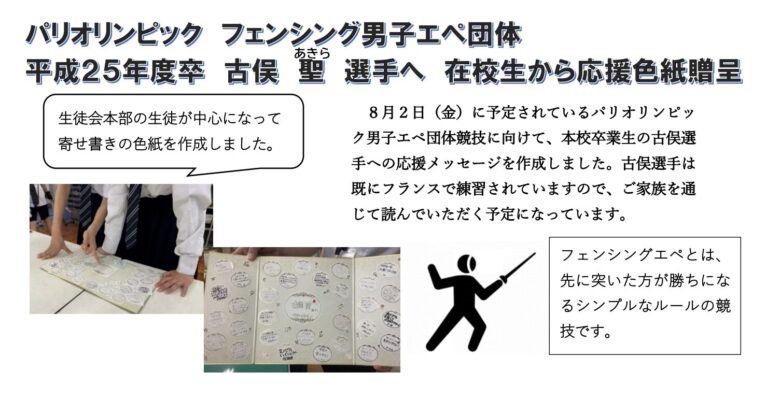 パリオリンピック　フェンシング男子エペ団体
あきら
平成２５年度卒　古俣　聖　選手へ　在校生から応援色紙贈呈
生徒会本部の生徒が中心になって
寄せ書きの色紙を作成しました。
８月２日（金）に予定されているパリオリンピッ
ク男子エペ団体競技に向けて、本校卒業生の古俣選
手への応援メッセージを作成しました。古俣選手は
既にフランスで練習されていますので、ご家族を通
じて読んでいただく予定になっています。
フェンシングエペとは、
先に突いた方が勝ちにな
るシンプルなルールの競
技です。